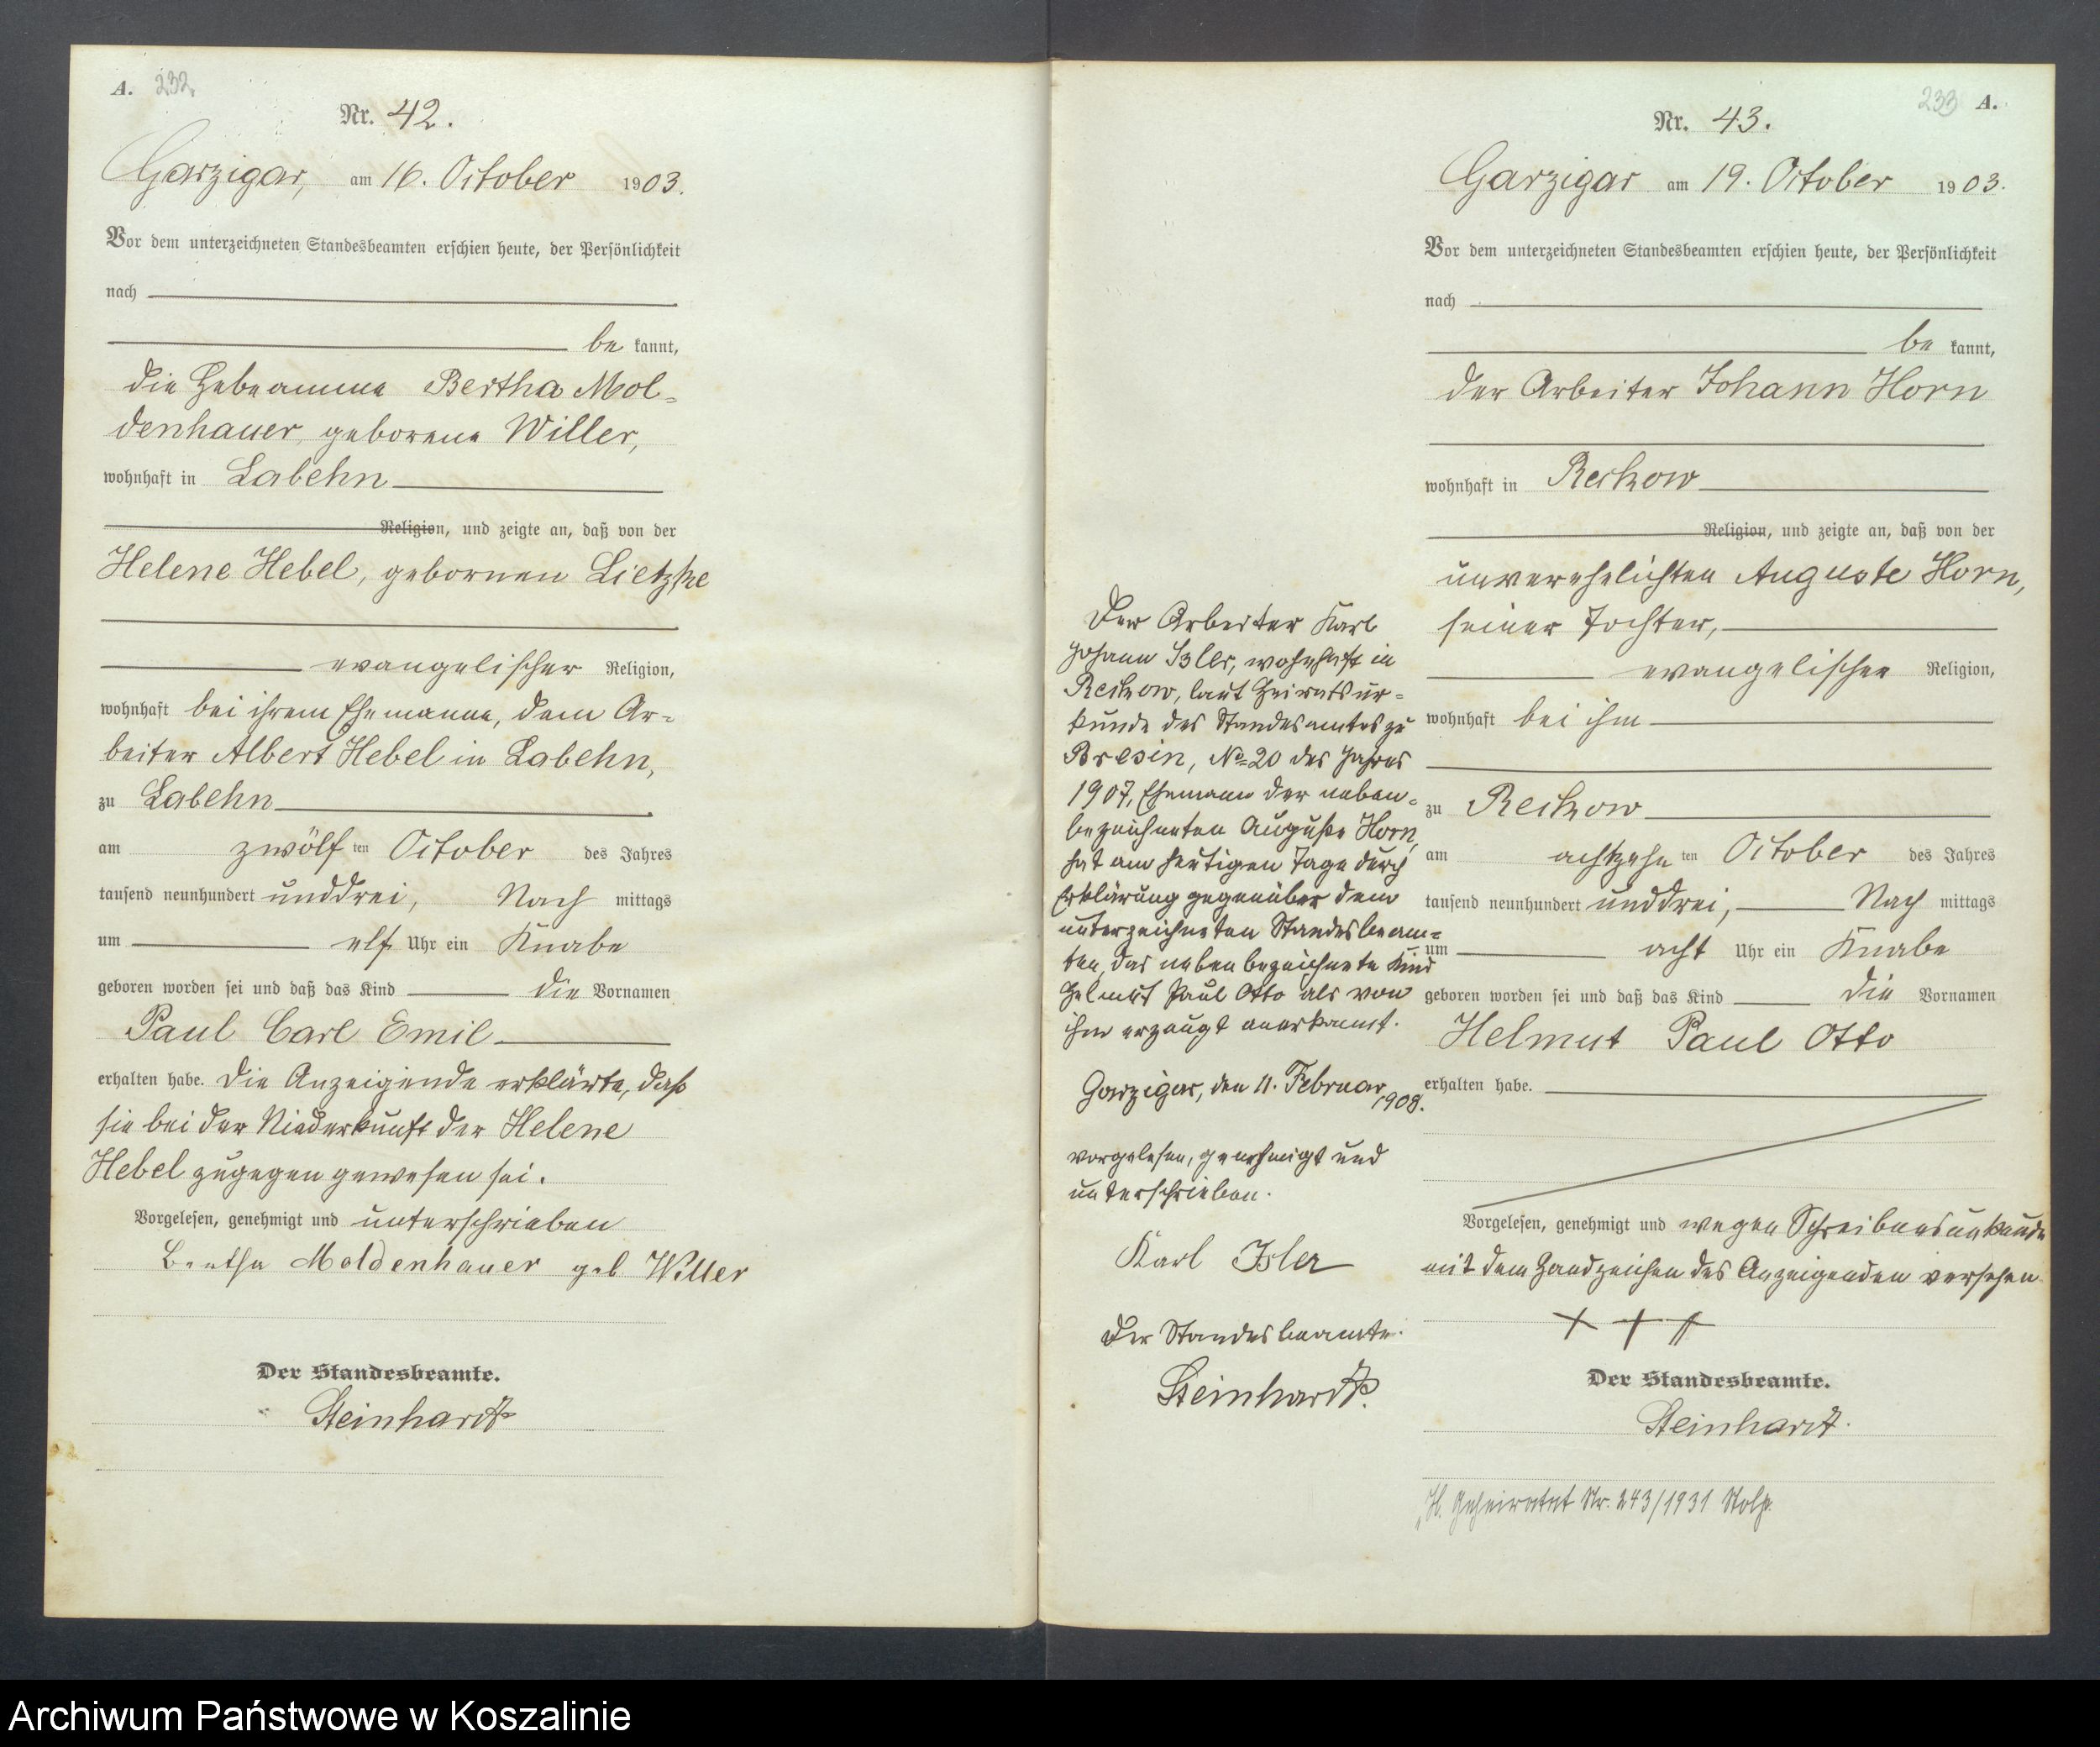 A. 232.
Nr. 42.
Garzigar, am 16. October 1903.
Vor dem unterzeichneten Standesbeamten erschien heute, der Persönlichkeit
nach
be kannt,
die Hebeamme Bertha Mol-
denhauer, geborene Willer,
wohnhaft in Labehn
Religion, und zeigte an, daß von der
Helene Hebel, gebornen Lietzke
evangelischer Religion,
wohnhaft bei ihrem Ehemanne, dem Ar-
beiter Albert Hebel in Labehn,
zu Labehn
am zwölf ten October des Jahres
tausend neunhundert unddrei, Nach mittags
um elf Uhr ein Knabe
geboren worden sei und daß das Kind die Vornamen
Paul Carl Emil
erhalten habe. Die Anzeigende erklärte, daß
sie bei der Niederkunft der Helene
Hebel zugegen gewesen sei.
Vorgelesen, genehmigt und unterschrieben
Bertha Moldenhauer geb Willer
Der Standesbeamte.
Steinhardt
233 A.
Nr. 43.
Garzigar am 19. October 1903.
Vor dem unterzeichneten Standesbeamten erschien heute, der Persönlichkeit
nach
be kannt,
der Arbeiter Johann Horn
wohnhaft in Reckow
Religion, und zeigte an, daß von der
unverehelichten Auguste Horn,
seiner Tochter,
evangelischer Religion,
wohnhaft bei ihm
zu Reckow
am achtzehn ten October des Jahres
tausend neunhundert unddrei, Nach mittags
um acht Uhr ein Knabe
geboren worden sei und daß das Kind die Vornamen
Helmut Paul Otto
erhalten habe.
Vorgelesen, genehmigt und wegen Schreibensunkunde
mit dem Handzeichen des Anzeigenden versehen.
+ + +
Der Standesbeamte.
Steinhardt.
H. geheiratet Nr. 243/1931 Stolp.
Der Arbeiter Karl
Johann Isler, wohnhaft in
Reckow, laut Heiratsur-
kunde des Standesamtes zu
Bresin, No 20 des Jahres
1907, Ehemann der neben-
bezeichneten Auguste Horn,
hat am heutigen Tage durch
Erklärung gegenüber dem
unterzeichneten Standesbeam-
ten, das nebenbezeichnete Kind
Helmut Paul Otto als von
ihm erzeugt anerkannt.
Garzigar, den 11. Februar
1908.
vorgelesen, genehmigt und
unterschrieben.
Karl Isler
Der Standesbeamte.
Steinhardt.
Archiwum Państwowe w Koszalinie